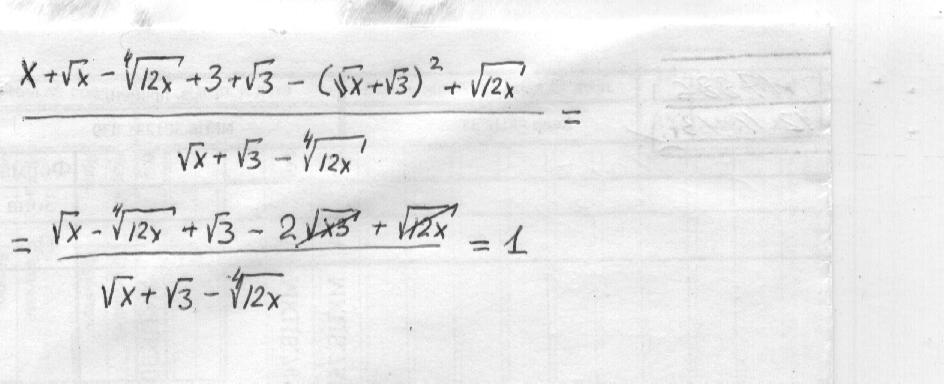 x + √x − ⁴√12x + 3 + √3 − (√x + √3)² + √12x =
√x + √3 − ⁴√12x
= √x − ⁴√12x + √3 − 2√x3 + √12x = 1
√x + √3 − ⁴√12x